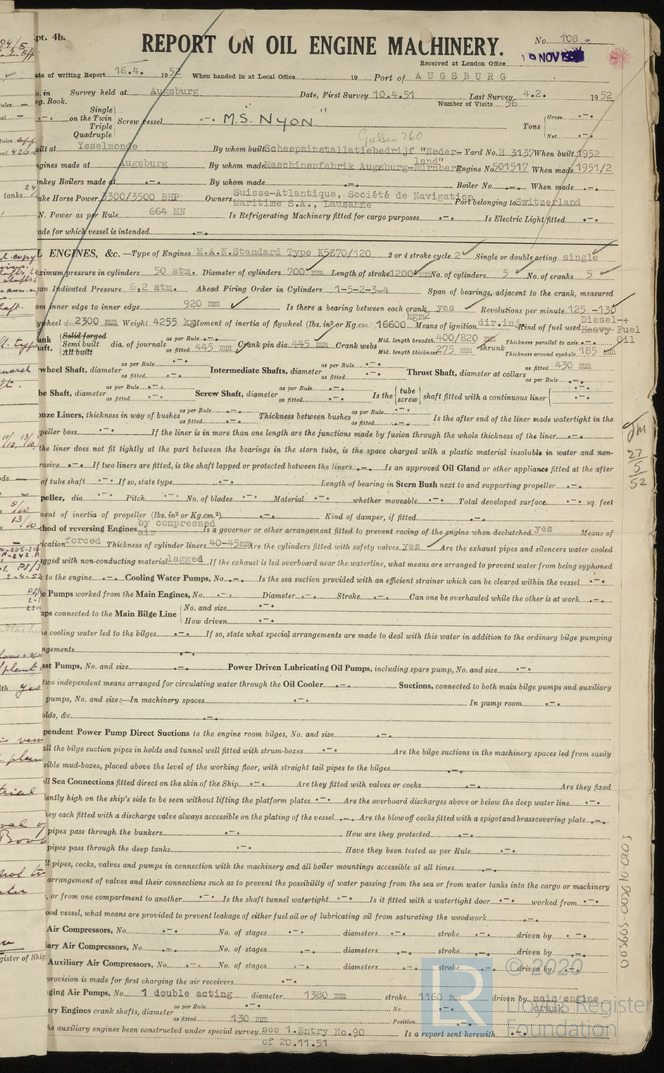 pt. 4b.
REPORT ON OIL ENGINE MACHINERY.
No. 108.
Received at London Office
19 NOV 195
ate of writing Report 16.4. 195 When handed in at Local Office 19 Port of AUGSBURG
o. in Survey held at Augsburg Date, First Survey 10.4.51 Last Survey 4.2. 1952
eg. Book. Number of Visits 56
Single
on the Twin
Triple
Quadruple
Screw vessel M.S. NYON Tons Gross Net
uilt at Ysselmonde By whom built Scheepsinstallatiebedrijf "Neder-land" Yard No. H 3137 When built 1952
ngines made at Augsburg By whom made Maschinenfabrik Augsburg-Nürnberg Engine No. 501517 When made 1951/2
nkey Boilers made at By whom made Boiler No. When made
ake Horse Power 3300/3500 BHP Owners Suisse-Atlantique, Société de Navigation Maritime S.A., Lausanne Port belonging to Switzerland
N. Power as per Rule 664 MN Is Refrigerating Machinery fitted for cargo purposes Is Electric Light fitted
ade for which vessel is intended
ENGINES, &c.—Type of Engines M.A.N. Standard Type K5Z70/120 2 or 4 stroke cycle 2 Single or double acting single
ximum pressure in cylinders 50 atm. Diameter of cylinders 700 mm Length of stroke 1200 mm No. of cylinders 5 No. of cranks 5
an Indicated Pressure 6,2 atm. Ahead Firing Order in Cylinders 1-5-2-3-4 Span of bearings, adjacent to the crank, measured
om inner edge to inner edge 920 mm Is there a bearing between each crank yes Revolutions per minute 125 -130
ywheel dia. 2300 mm Weight 4255 kg Moment of inertia of flywheel (lbs. in² or Kg.cm²) 16600 kgm2 Means of ignition dir.inj Kind of fuel used Diesel-+ Heavy Fuel Oil
ank Solid forged
Semi built
All built
dia. of journals as per Rule as fitted 445 mm Crank pin dia. 445 mm Crank webs Mid. length breadth 400/820 mm Mid. length thickness 275 mm shrunk Thickness parallel to axis Thickness around eyehole 185 mm
wheel Shaft, diameter as per Rule as fitted Intermediate Shafts, diameter as per Rule as fitted Thrust Shaft, diameter at collars as per Rule as fitted 430 mm
be Shaft, diameter as per Rule as fitted Screw Shaft, diameter as per Rule as fitted Is the { tube screw } shaft fitted with a continuous liner
onze Liners, thickness in way of bushes as per Rule as fitted Thickness between bushes as per Rule as fitted Is the after end of the liner made watertight in the
peller boss If the liner is in more than one length are the junctions made by fusion through the whole thickness of the liner
the liner does not fit tightly at the part between the bearings in the stern tube, is the space charged with a plastic material insoluble in water and non-
rosive If two liners are fitted, is the shaft lapped or protected between the liners Is an approved Oil Gland or other appliance fitted at the after
of tube shaft If so, state type Length of bearing in Stern Bush next to and supporting propeller
peller, dia. Pitch No. of blades Material whether moveable Total developed surface sq. feet
ment of inertia of propeller (lbs. in² or Kg.cm²) Kind of damper, if fitted
thod of reversing Engines by compressed air Is a governor or other arrangement fitted to prevent racing of the engine when declutched yes Means of
ication forced Thickness of cylinder liners 40-45mm Are the cylinders fitted with safety valves yes Are the exhaust pipes and silencers water cooled
agged with non-conducting material lagged If the exhaust is led overboard near the waterline, what means are arranged to prevent water from being syphoned
to the engine Cooling Water Pumps, No. Is the sea suction provided with an efficient strainer which can be cleared within the vessel
e Pumps worked from the Main Engines, No. Diameter Stroke Can one be overhauled while the other is at work
ps connected to the Main Bilge Line { No. and size
How driven
e cooling water led to the bilges If so, state what special arrangements are made to deal with this water in addition to the ordinary bilge pumping
ngements
ast Pumps, No. and size Power Driven Lubricating Oil Pumps, including spare pump, No. and size
two independent means arranged for circulating water through the Oil Cooler Suctions, connected to both main bilge pumps and auxiliary
pumps, No. and size:—In machinery spaces In pump room
olds, &c.
pendent Power Pump Direct Suctions to the engine room bilges, No. and size
all the bilge suction pipes in holds and tunnel well fitted with strum-boxes Are the bilge suctions in the machinery spaces led from easily
sible mud-boxes, placed above the level of the working floor, with straight tail pipes to the bilges
ll Sea Connections fitted direct on the skin of the Ship Are they fitted with valves or cocks Are they fixed
iently high on the ship's side to be seen without lifting the platform plates Are the overboard discharges above or below the deep water line
hey each fitted with a discharge valve always accessible on the plating of the vessel Are the blow off cocks fitted with a spigot and brass covering plate
pipes pass through the bunkers How are they protected
pipes pass through the deep tanks Have they been tested as per Rule
ll pipes, cocks, valves and pumps in connection with the machinery and all boiler mountings accessible at all times
arrangement of valves and their connections such as to prevent the possibility of water passing from the sea or from water tanks into the cargo or machinery
, or from one compartment to another Is the shaft tunnel watertight Is it fitted with a watertight door worked from
ood vessel, what means are provided to prevent leakage of either fuel oil or of lubricating oil from saturating the woodwork
Air Compressors, No. No. of stages diameters stroke driven by
iary Air Compressors, No. No. of stages diameters stroke driven by
Auxiliary Air Compressors, No. No. of stages diameters stroke driven by
provision is made for first charging the air receivers
ging Air Pumps, No. 1 double acting diameter 1380 mm stroke 1160 mm driven by main engine
ary Engines crank shafts, diameter as per Rule as fitted 130 mm No. Position
he auxiliary engines been constructed under special survey see 1.Entry No.90 of 20.11.51 Is a report sent herewith
27
5
52
003001-003608-0200
© 2020
Lloyd's Register
Foundation